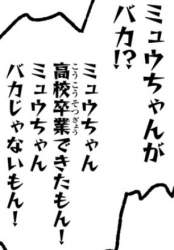 ミュウちゃんが
バカ!?
ミュウちゃん
高校卒業できたもん!
ミュウちゃん
バカじゃないもん!